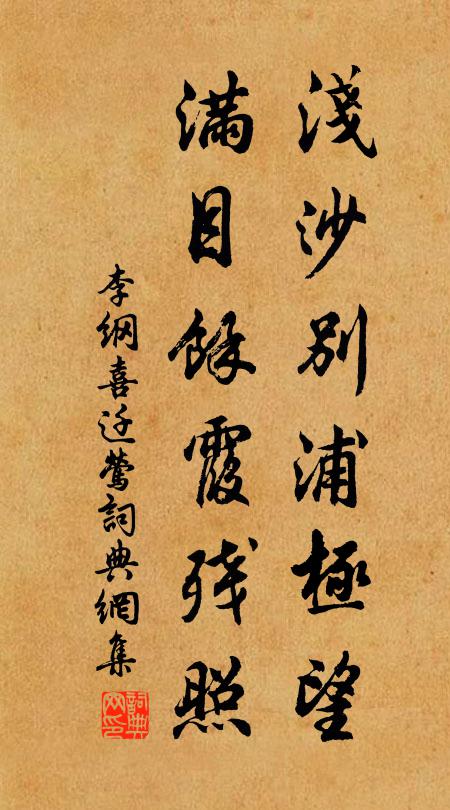 淺沙別浦極望
滿目餘霞殘照
李綱喜迁鶯詞典網集
詞典網印